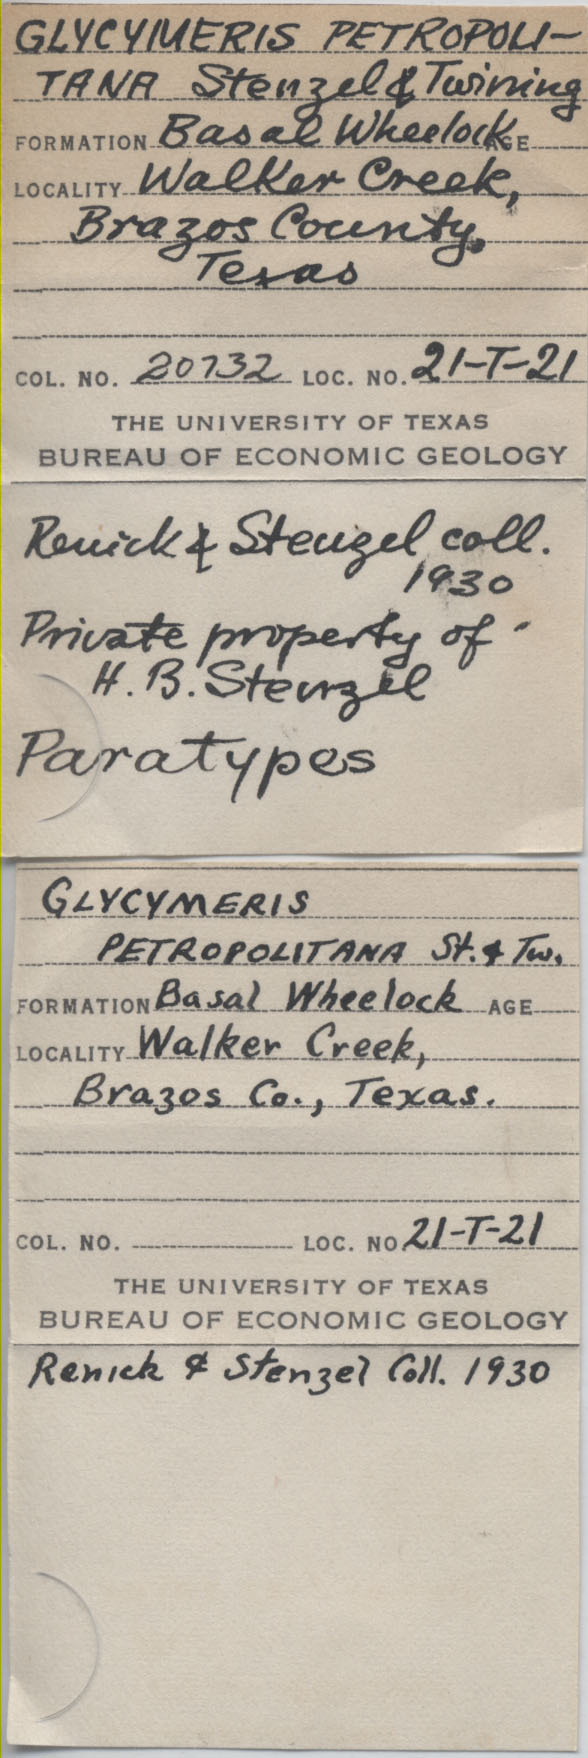 GLYCYMERIS PETROPOLI-
TANA Stenzel & Twining
FORMATION Basal Wheelock AGE
LOCALITY Walker Creek,
Brazos County,
Texas
COL. NO. 20732 LOC. NO. 21-T-21
THE UNIVERSITY OF TEXAS
BUREAU OF ECONOMIC GEOLOGY
Renick & Stenzel coll.
1930
Private property of
H. B. Stenzel
Paratypes
GLYCYMERIS
PETROPOLITANA St. & Tw.
FORMATION Basal Wheelock AGE
LOCALITY Walker Creek,
Brazos Co., Texas.
COL. NO. LOC. NO. 21-T-21
THE UNIVERSITY OF TEXAS
BUREAU OF ECONOMIC GEOLOGY
Renick & Stenzel Coll. 1930